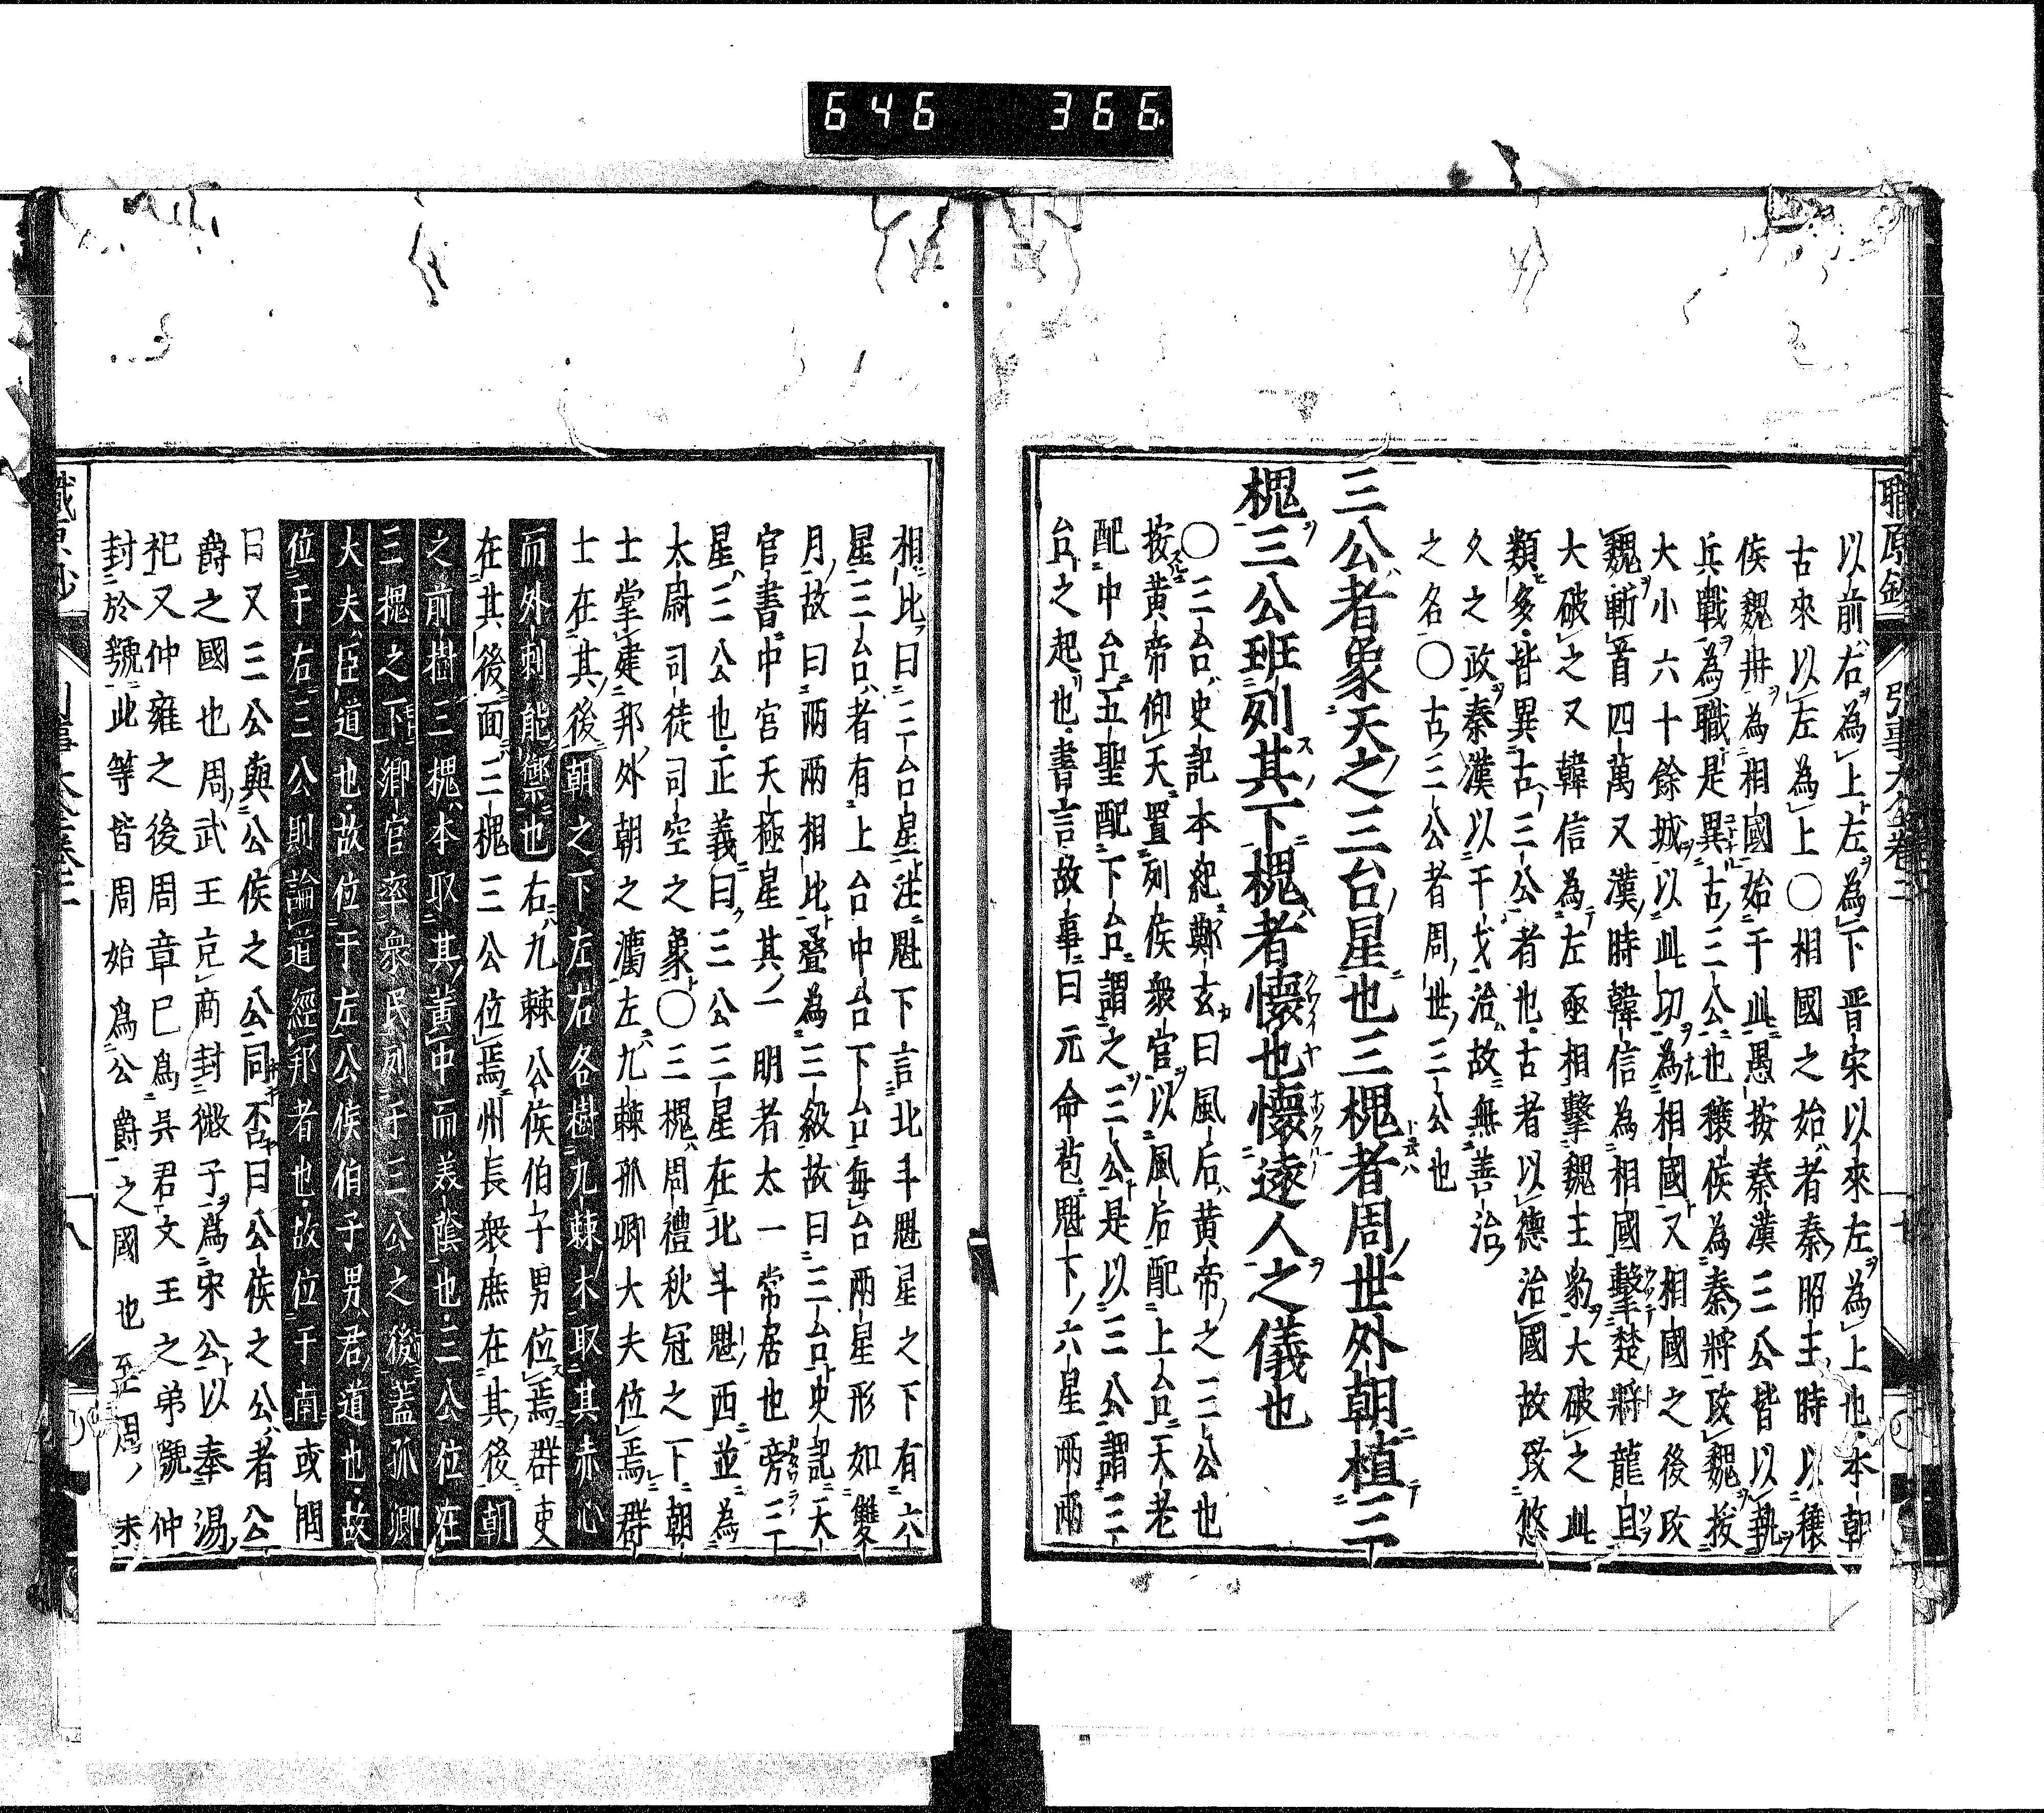 646 366
職原鈔 引事大全卷二
以前右為上左為下晋宋以來左為上也本朝
古來以左為上〇相國之始者秦昭王時以穰
侯魏冉為相國始于此愚按秦漢三公皆以執
兵戰為職是異古三公也穰侯為秦將攻魏拔
大小六十餘城以此切為相國又相國之後攻
魏斬首四萬又漢時韓信為相國擊楚將龍且
大破之又韓信為左丞相擊魏王豹大破之此
類多皆異古三公者也古者以德治國故致悠
久之政秦漢以干戈治故無善治
之名〇古三公者周世三公也
三公者象天之三台星也三槐者周世外朝植三
槐三公班列其下槐者懷也懷遠人之儀也
〇三台史記本紀鄭玄曰風后黃帝之三公也
按黃帝仰天置列侯衆官以風后配上台天老
配中台五聖配下台謂之三公是以三公謂三
台之起也書言故事曰元命苞魁下六星兩兩
相比曰三台星注魁下言北斗魁星之下有六
星三台者有上台中台下台每台兩星形如雙
月故曰兩兩相比疊為三級故曰三台史記天
官書中宮天極星其一明者太一常居也旁三
星三公也正義曰三公三星在北斗魁西並為
太尉司徒司空之象〇三槐周禮秋冠之下朝
士掌建邦外朝之灋左九棘孤卿大夫位焉群
士在其後朝之下左右各樹九棘木取其赤心
而外刺能禦也右九棘公侯伯子男位焉群吏
在其後面三槐三公位焉州長衆庶在其後朝
之前樹三槐本取其黃中而美蔭也三公位在
三槐之下卿官率衆民列于三公之後蓋孤卿
大夫臣道也故位于左公侯伯子男君道也故
位于右三公則論道經邦者也故位于南或問
曰又三公與公侯之公同否曰公侯之公者公
爵之國也周武王克商封微子爲宋公以奉湯
祀又仲雍之後周章已爲吳君文王之弟虢仲
封於虢此等皆周始爲公爵之國也至周ノ末
八